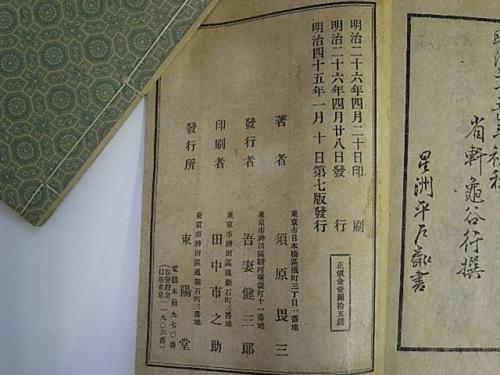 明治二十六年四月二十日印刷
明治二十六年四月廿八日發行
明治四十五年一月十日第七版發行
正價金壹圓拾五錢
東京市日本橋區濱町三丁目一番地
著者 須原畏三
東京市神田區駿河臺袋町十一番地
發行者 吾妻健三郎
東京市神田區通新石町三番地
印刷者 田中市之助
東京市神田區通新石町三番地
發行所 東陽堂
電話本局九七〇番
省軒龜谷行撰
星洲平戶
書